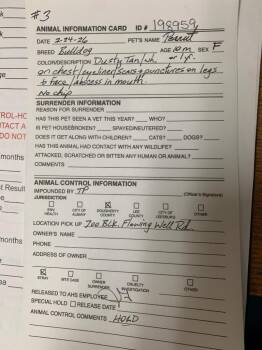 #3
ANIMAL INFORMATION CARD ID # 198959
DATE 2-24-26 PET'S NAME
BREED Bulldog AGE 10m SEX F
COLOR/DESCRIPTION Dusty Tan/wh or 1yr.
on chest/eyeliner/scars + punctures on legs
+ face/abscess in mouth.
No chip
SURRENDER INFORMATION
REASON FOR SURRENDER
HAS THIS PET SEEN A VET THIS YEAR? WHO?
IS PET HOUSEBROKEN? SPAYED/NEUTERED?
DOES IT GET ALONG WITH CHILDREN? CATS? DOGS?
HAS THIS ANIMAL HAD CONTACT WITH ANY WILDLIFE?
ATTACKED, SCRATCHED OR BITTEN ANY HUMAN OR ANIMAL?
COMMENTS
ANIMAL CONTROL INFORMATION
IMPOUNDED BY JP (Officer's Signature)
JURISDICTION
ENV. HEALTH CITY OF ALBANY DOUGHERTY COUNTY LEE COUNTY CITY OF LEESBURG OTHER
LOCATION PICK UP 700 Blk. Flowing Well Rd
OWNER'S NAME
PHONE
ADDRESS OF OWNER
STRAY BITE CASE OWNER SURRENDER CRUELTY INVESTIGATION OTHER
RELEASED TO AHS EMPLOYEE
SPECIAL HOLD RELEASE DATE
ANIMAL CONTROL COMMENTS HOLD
months
months